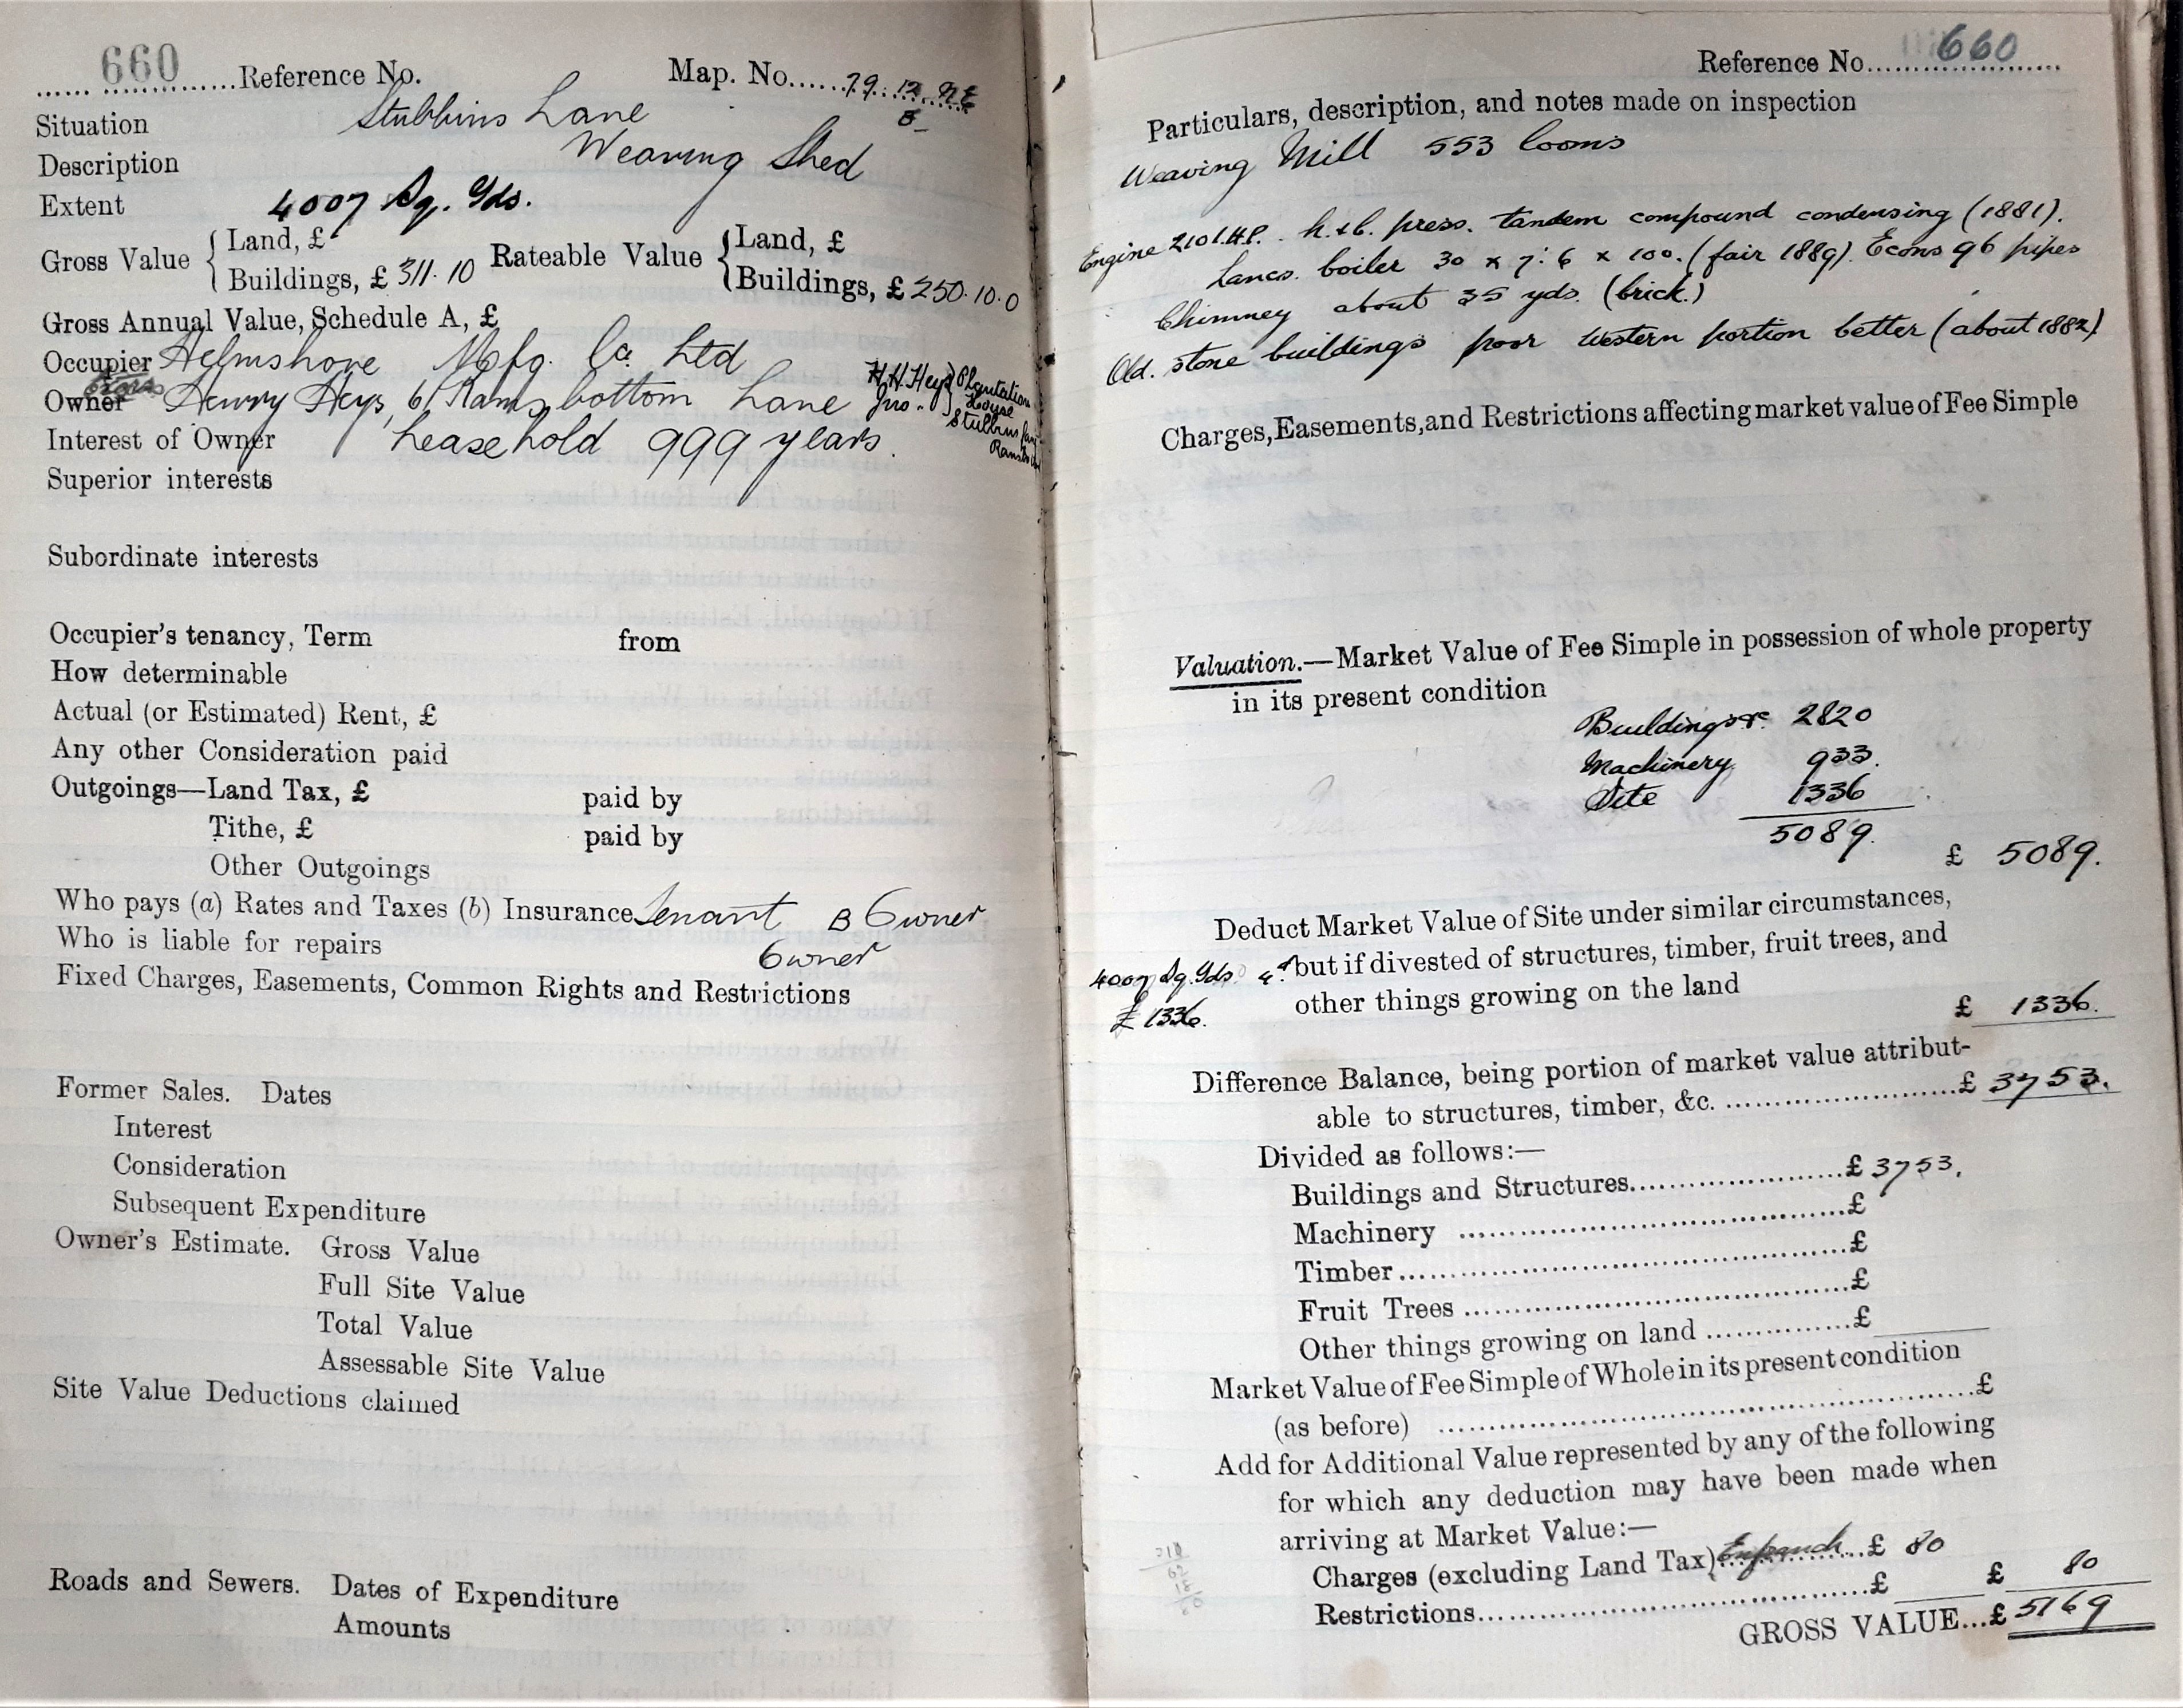 660 Reference No. Map. No. 79. 12. NE
8
Situation Stubbins Lane
Description Weaving Shed
Extent 4007 Sq. Yds.
Gross Value { Land, £ Rateable Value { Land, £
Buildings, £ 311.10 Buildings, £ 250.10.0
Gross Annual Value, Schedule A, £
Occupier Helmshore Mfg. Co. Ltd
Exors
Owner Henry Heys, 61 Ramsbottom Lane
H.H. Heys } Plantation
Jno. " } House
Stubbins Lane
Interest of Owner Leasehold 999 years.
Superior interests
Subordinate interests
Occupier's tenancy, Term from
How determinable
Actual (or Estimated) Rent, £
Any other Consideration paid
Outgoings—Land Tax, £ paid by
Tithe, £ paid by
Other Outgoings
Who pays (a) Rates and Taxes (b) Insurance Tenant B Owner
Who is liable for repairs Owner
Fixed Charges, Easements, Common Rights and Restrictions
Former Sales. Dates
Interest
Consideration
Subsequent Expenditure
Owner's Estimate. Gross Value
Full Site Value
Total Value
Assessable Site Value
Site Value Deductions claimed
Roads and Sewers. Dates of Expenditure
Amounts
Reference No. 660
Particulars, description, and notes made on inspection
Weaving Mill 553 looms
Engine 210 I.H.P. h. & l. press. tandem compound condensing (1881).
Lancs. boiler 30 x 7:6 x 100. (fair 1889). Econs 96 pipes
Chimney about 35 yds. (brick.)
Old. stone buildings poor western portion better (about 1882)
Charges, Easements, and Restrictions affecting market value of Fee Simple
Valuation.—Market Value of Fee Simple in possession of whole property
in its present condition
Buildings &c. 2820
Machinery 933.
Site 1336
5089.
£ 5089.
Deduct Market Value of Site under similar circumstances,
4007 Sq. Yds. but if divested of structures, timber, fruit trees, and
£ 1336. other things growing on the land £ 1336.
Difference Balance, being portion of market value attribut-
able to structures, timber, &c. £ 3753.
Divided as follows:—
Buildings and Structures £ 3753.
Machinery £
Timber £
Fruit Trees £
Other things growing on land £
Market Value of Fee Simple of Whole in its present condition
(as before) £
Add for Additional Value represented by any of the following
for which any deduction may have been made when
arriving at Market Value:—
Charges (excluding Land Tax) £ 80 £ 80
Restrictions £
GROSS VALUE...£ 5169